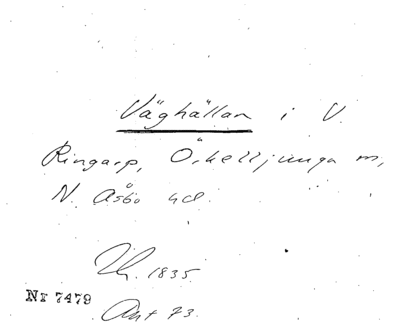 Väghällan i V.
Ringarp, Örkelljunga m,
N. Åsbo hd.
Th. 1835
Nr 7479
Ant 73.